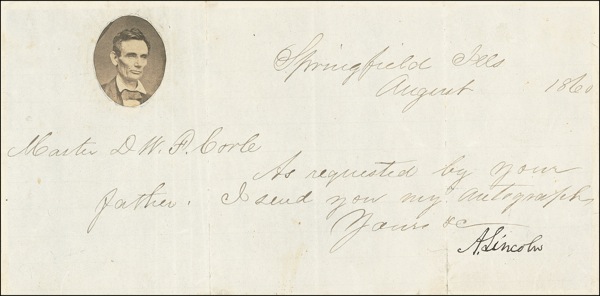 Springfield Ills
August 1860
Master D W. P. Corle
As requested by your
father. I send you my autograph
Yours &c
A. Lincoln